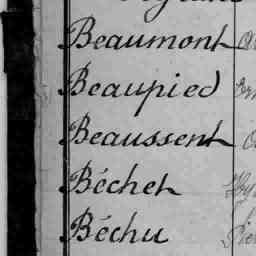 Beaumont
Beaupied
Beaussent
Béchet
Béchu